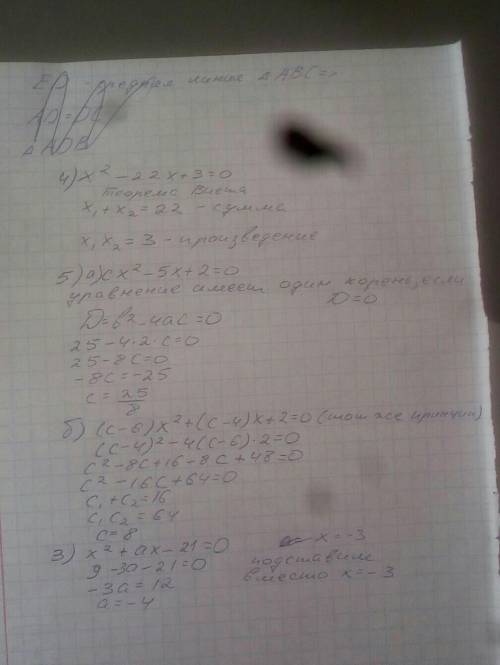 ED - средняя линия △ABC =>
AD = DC
△ADB
4) x² - 22x + 3 = 0
Теорема Виета
x₁ + x₂ = 22 - сумма
x₁x₂ = 3 - произведение
5) а) cx² - 5x + 2 = 0
уравнение имеет один корень, если
D = 0
D = b² - 4ac = 0
25 - 4·2·c = 0
25 - 8c = 0
-8c = -25
c = 25/8
б) (c-6)x² + (c-4)x + 2 = 0 (тот же принцип)
(c-4)² - 4(c-6)·2 = 0
c² - 8c + 16 - 8c + 48 = 0
c² - 16c + 64 = 0
c₁ + c₂ = 16
c₁c₂ = 64
c = 8
3) x² + ax - 21 = 0 x = -3
9 - 3a - 21 = 0 подставим
-3a = 12 вместо x = -3
a = -4